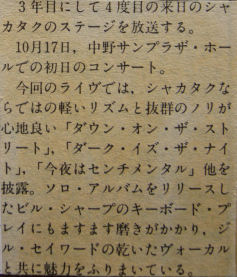 3年目にして4度目の来日のシャ
カタクのステージを放送する。
10月17日，中野サンプラザ・ホー
ルでの初日のコンサート。
今回のライヴでは，シャカタクな
らではの軽いリズムと抜群のノリが
心地良い「ダウン・オン・ザ・スト
リート」，「ダーク・イズ・ザ・ナイ
ト」，「今夜はセンチメンタル」他を
披露。ソロ・アルバムをリリースし
たビル・シャープのキーボード・プ
レイにもますます磨きがかかり，ジ
ル・セイワードの乾いたヴォーカル
と共に魅力をふりまいている。